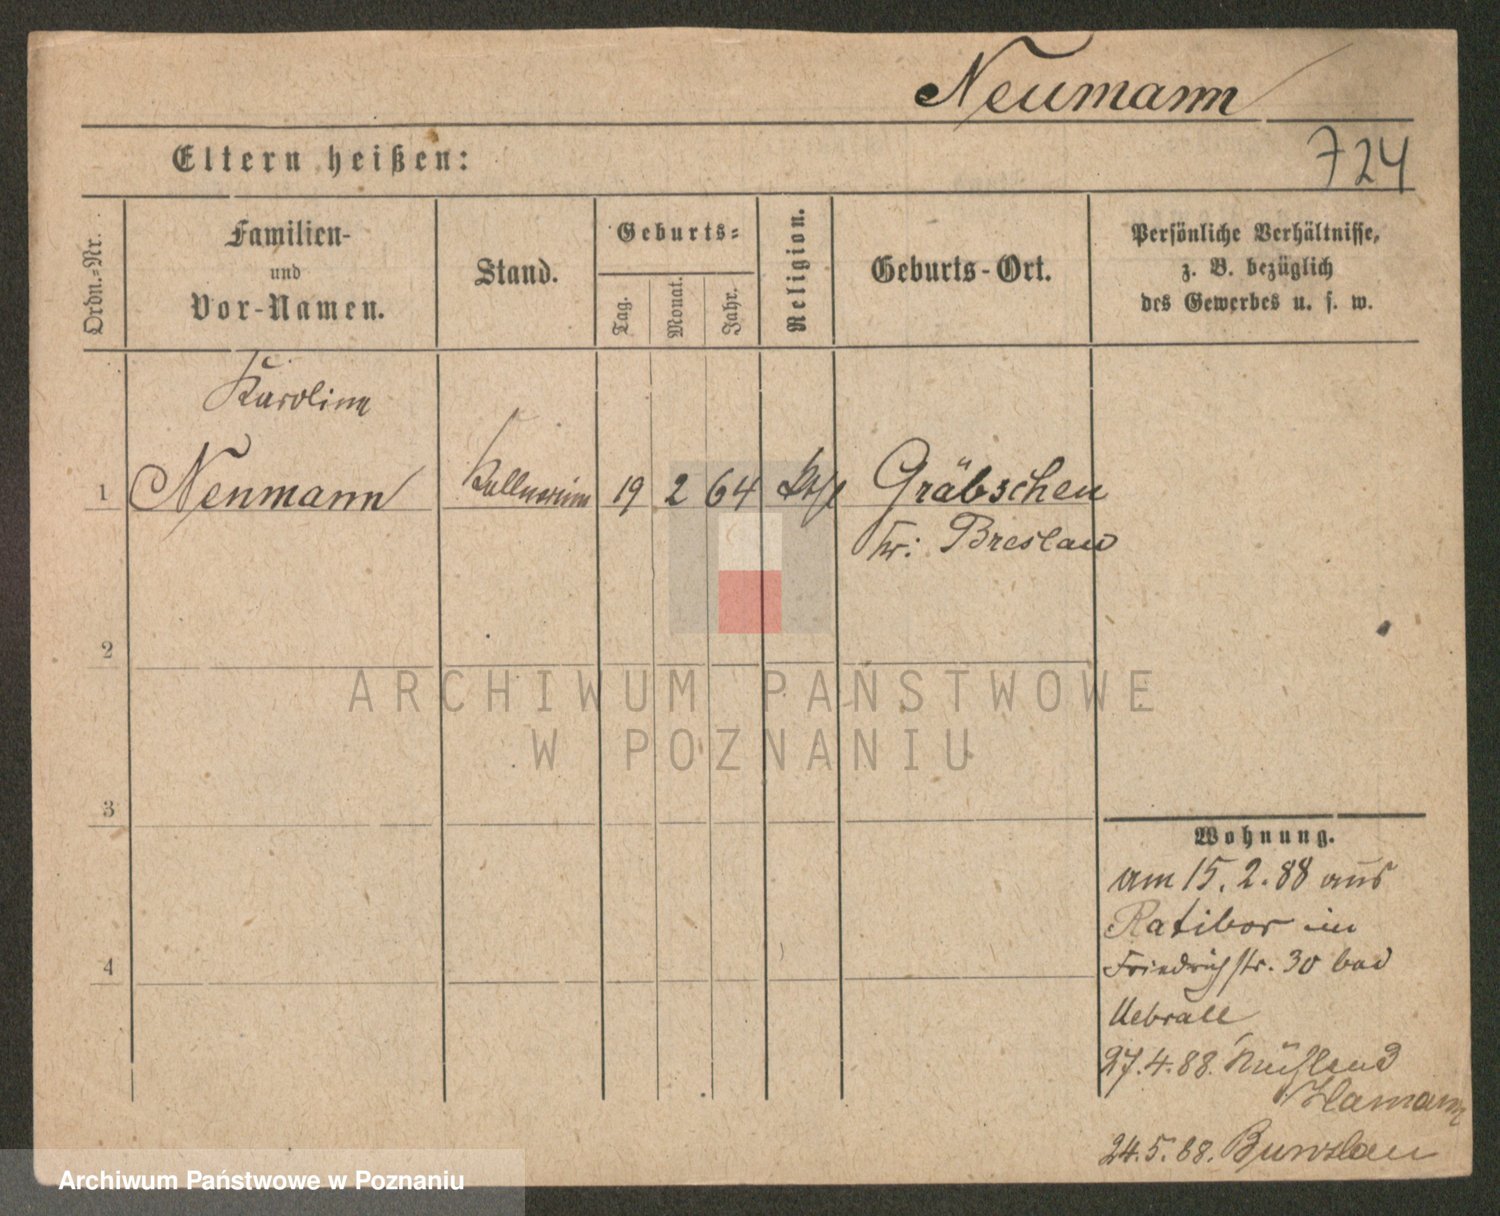 Neumann
724
Eltern heißen:
Ordn.-Nr.
Familien-
und
Vor-Namen.
Stand.
Geburts-
Tag.
Monat.
Jahr.
Religion.
Geburts-Ort.
Persönliche Verhältnisse,
z. B. bezüglich
des Gewerbes u. s. w.
Karoline
1 Neumann Kellnerin 19 2 64 Gräbschen
Kr: Breslau
2
3
4
Wohnung.
am 15.2.88 aus
Ratibor in
Friedrichstr. 30 bei
Uebrall
27.4.88.
Hamann
24.5.88. Breslau
ARCHIWUM PAŃSTWOWE
W POZNANIU
Archiwum Państwowe w Poznaniu